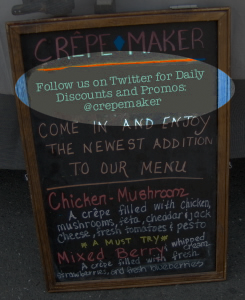 CRÊPE MAKER
Follow us on Twitter for Daily
Discounts and Promos:
@crepemaker
COME IN AND ENJOY
THE NEWEST ADDITION
TO OUR MENU
Chicken-Mushroom
A crêpe filled with chicken,
mushrooms, feta, cheddar & jack
cheese, fresh tomatoes & pesto
* A MUST TRY *
Mixed Berry whipped cream
A crêpe filled with fresh
strawberries, and fresh blueberries